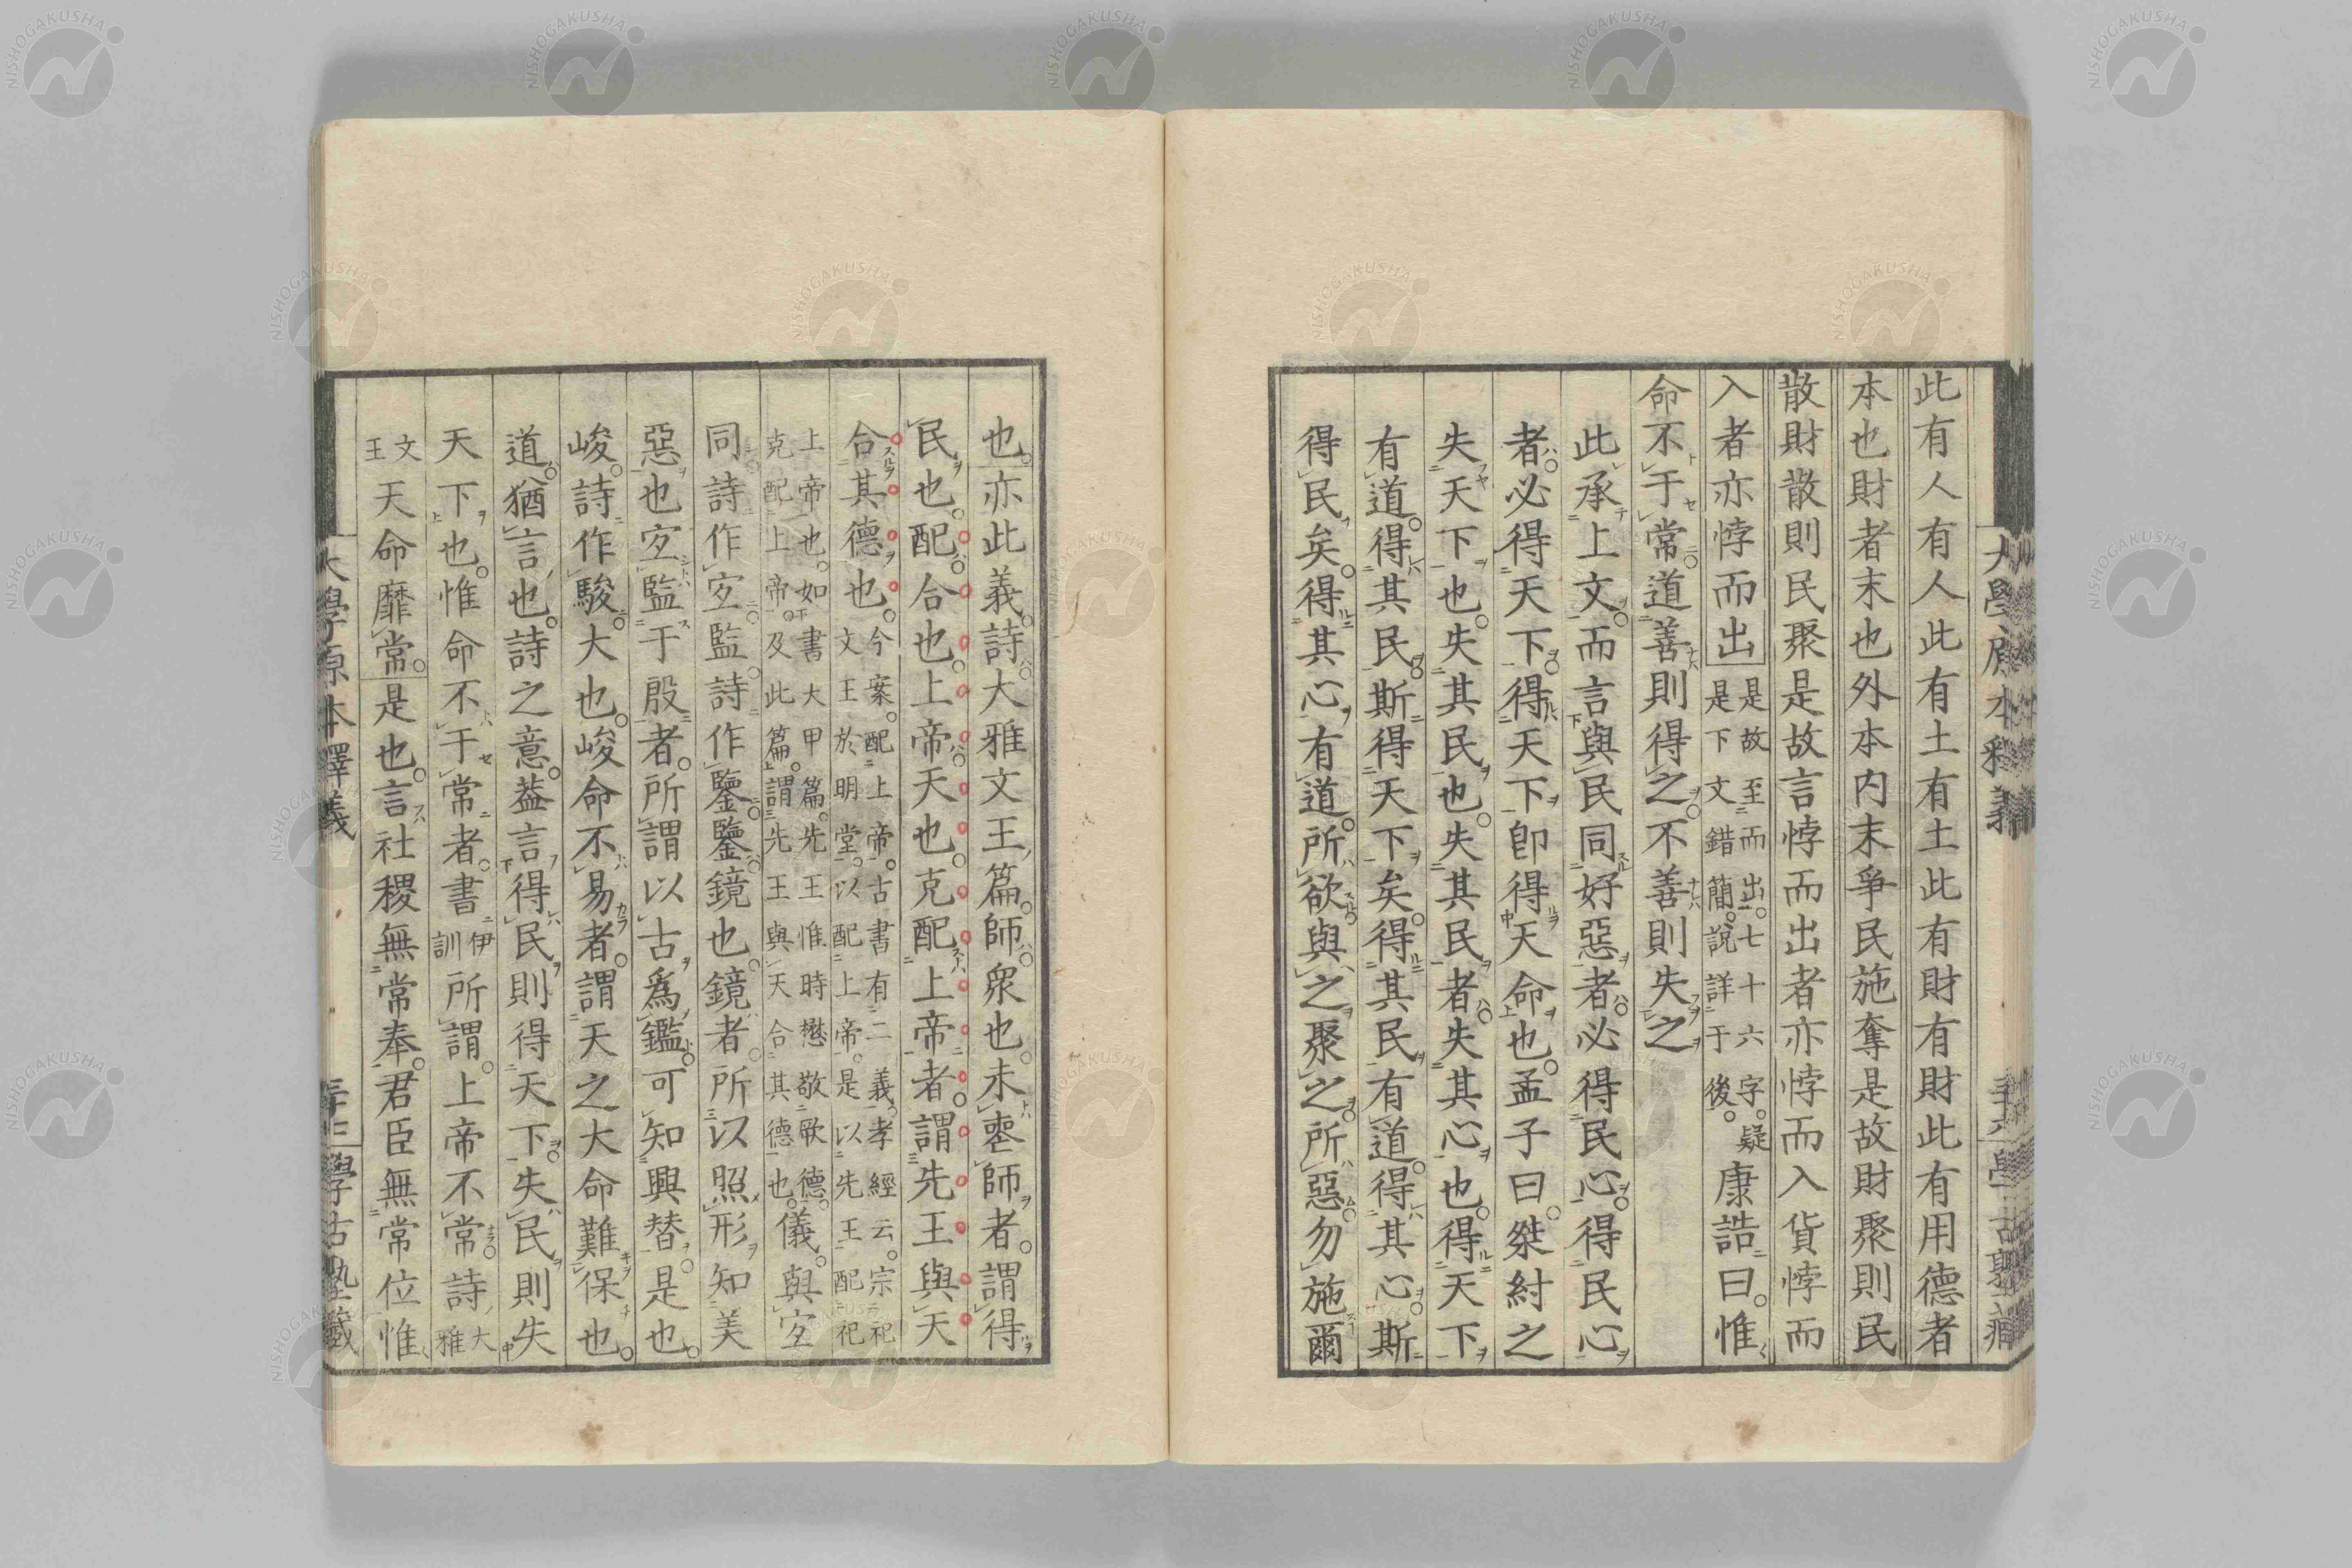 此有人有人此有土有土此有財有財此有用德者
本也財者末也外本內末爭民施奪是故財聚則民
散財散則民聚是故言悖而出者亦悖而入貨悖而
入者亦悖而出是故至而出。七十六字。疑是下文錯簡。說詳于後。康誥曰。惟
命不于常道善則得之不善則失之
此承上文而言與民同好惡者必得民心得民心
者必得天下得天下卽得天命也孟子曰桀紂之
失天下也失其民也失其民者失其心也得天下
有道得其民斯得天下矣得其民有道得其心斯
得民矣得其心有道所欲與之聚之所惡勿施爾
也亦此義詩大雅文王篇師衆也未喪師者謂得
民也配合也上帝天也克配上帝者謂先王與天
合其德也今案。配上帝。古書有二義。孝經云。宗祀文王於明堂。以配上帝。是以先王配祀
上帝也。如書大甲篇。先王惟時懋敬厥德。克配上帝。及此篇。謂先王與天合其德也。儀與宜
同詩作宜監詩作鑒鑒鏡也鏡者所以照形知美
惡也宜監于殷者所謂以古爲鑑可知興替是也
峻詩作駿大也峻命不易者謂天之大命難保也
道猶言也詩之意蓋言得民則得天下失民則失
天下也惟命不于常者書伊訓所謂上帝不常詩大雅
文王天命靡常是也言社稷無常奉君臣無常位惟
大學原本釋義
學古塾藏
NISHOGAKUSHA